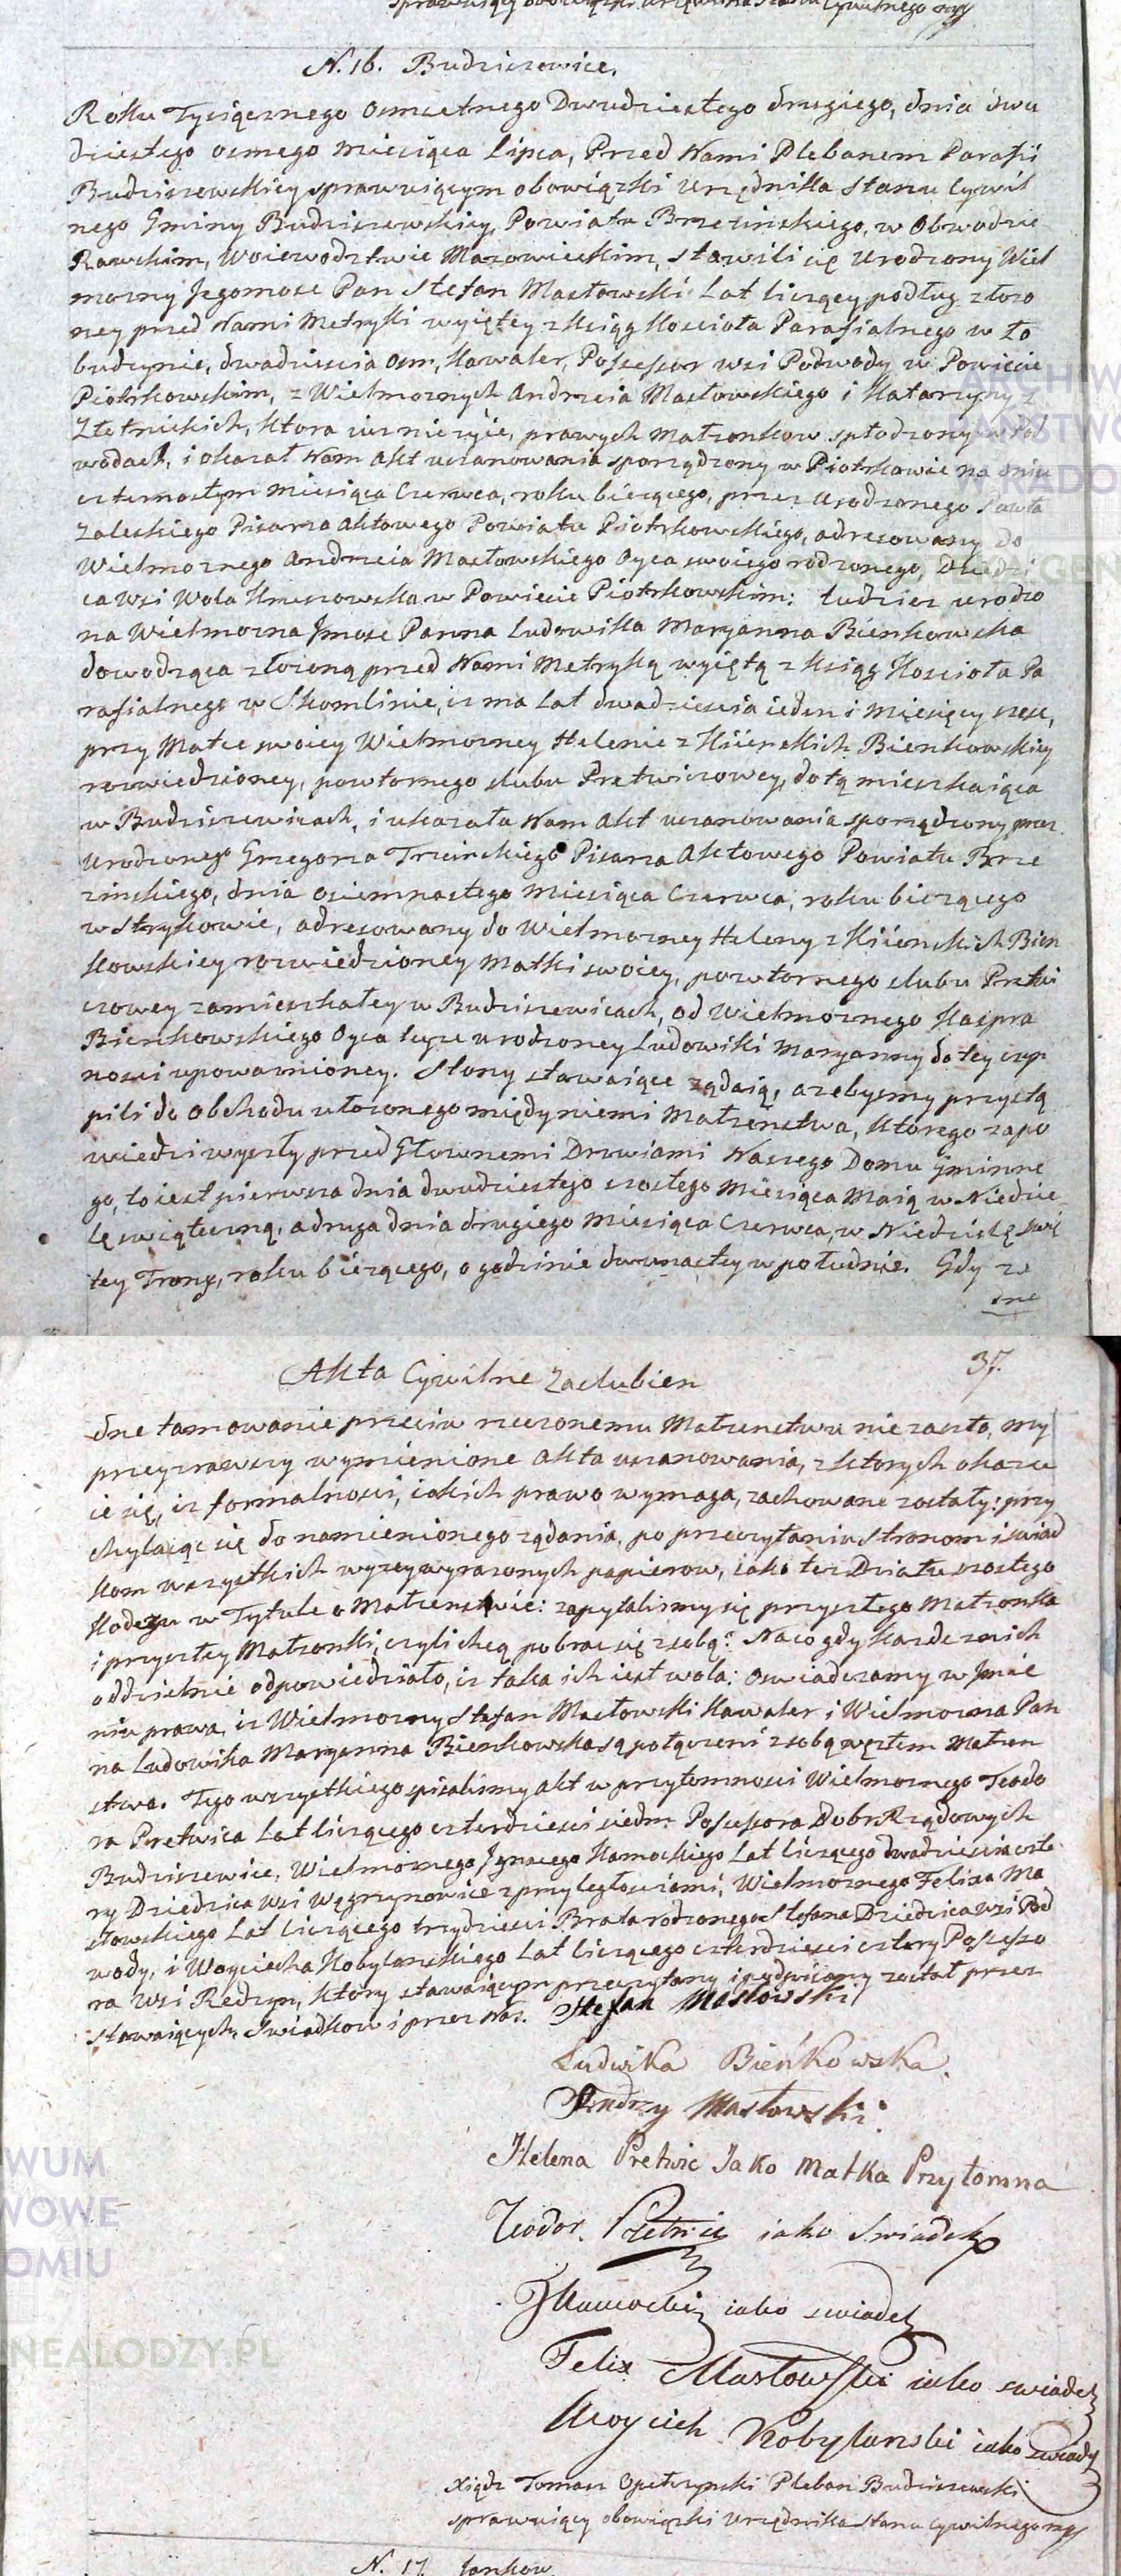 sprawuiący obowiązki Urzędnika Stanu Cywilnego mp
N. 16. Budziszewice.
Roku Tysiącznego Osmsetnego Dwudziestego drugiego, dnia dwu
dziestego osmego Miesiąca Lipca, Przed Nami Plebanem Parafii
Budziszewskiey sprawuiącym obowiązki Urzędnika Stanu Cywil
nego Gminy Budziszewskiey, Powiatu Brzezinskiego, w Obwodzie
Rawskim, Woiewodztwie Mazowieckim, stawili się Urodzony Wiel
mozny Jegomosc Pan Stefan Masłowski Lat liczący podług złozo
ney przed Nami Metryki wyiętey z Ksiąg Koscioła Parafialnego w Ło
budzynie, dwadziescia osm, Kawaler, Possessor wsi Podwody w Powiecie
Piotrkowskim, z Wielmoznych Andrzeia Masłowskiego i Katarzyny z
Złotnickich, ktora iuz nie zyie, prawych Małzonkow spłodzony w Pod
wodach, i okazał Nam Akt uszanowania sporządzony w Piotrkowie na dniu
czternastym Miesiąca Czerwca, roku biezącego, przez Urodzonego Pawła
Zaleskiego Pisarza Aktowego Powiatu Piotrkowskiego, adresowany do
Wielmoznego Andrzeia Masłowskiego Oyca swoiego rodzonego, Dziedzi
ca wsi Wola Kruszowska w Powiecie Piotrkowskim: tudziez urodzo
na Wielmozna Jmosc Panna Ludowika Maryanna Bienkowska
dowodząca złozoną przed Nami Metryką wyiętą z Ksiąg Koscioła Pa
rafialnego w Skomlinie, iz ma Lat dwadziescia ieden i Miesięcy szesc,
przy Matce swoiey Wielmozney Helenie z Kiienskich Bienkowskiey
rozwiedzioney, powtornego slubu Pretwiczowey, dotą mieszkaiąca
w Budziszewicach, i ukazała Nam Akt uszanowania sporządzony przez
Urodzonego Grzegorza Trzcinskiego Pisarza Aktowego Powiatu Brze
zinskiego, dnia osiemnastego Miesiąca Czerwca, roku biezącego
w Strykowie, adresowany do Wielmozney Heleny z Kiienskich Bien
kowskiey rozwiedzioney Matki swoiey, powtornego slubu Pretwi
czowey zamieszkałey w Budziszewicach, od Wielmoznego Kaspra
Bienkowskiego Oyca teyze urodzoney Ludowiki Maryanny do tey czyn
nosci upowaznioney. Strony stawaiące ządaią, azebysmy przystą
pili do Obchodu ułozonego między niemi Małzenstwa, ktorego zapo
wiedzi wyszły przed Głownemi Drzwiami Naszego Domu Gminne
go, to iest pierwsza dnia dwudziestego szostego Miesiąca Maia w Niedzie
lę swiąteczną, a druga dnia drugiego Miesiąca Czerwca, w Niedzielę Swię
tey Troycy, roku biezącego, o godzinie dwunastey w południe. Gdy za
dne
Akta Cywilne Zaslubien
37.
dne tamowanie przeciw rzeczonemu Małzenstwu nie zaszło, my
przeyzrawszy wymienione Akta uszanowania, z ktorych okazu
ie się, iz formalnosci, iakich prawo wymaga, zachowane zostały: przy
chylaiąc się do namienionego ządania, po przeczytaniu Stronom i swiad
kom wszystkich wyzey wyrazonych papierow, iako tez Działu szostego
Kodexu w Tytule o Małzenstwie: zapytalismy się przyszłego Małzonka
i przyszłey Małzonki, czyli chcą pobrac się z sobą? Na co gdy kazde z nich
oddzielnie odpowiedziało, iz taka ich iest wola: Oswiadczamy w Jmie
niu prawa, iz Wielmozny Stefan Masłowski Kawaler i Wielmozna Pan
na Ludowika Maryanna Bienkowska są połączeni z sobą węzłem Małzen
stwa. Tego wszystkiego spisalismy Akt w przytomnosci Wielmoznego Teodo
ra Pretwica Lat liczącego czterdziesci siedm Possessora Dobr Rządowych
Budziszewice, Wielmoznego Jgnacego Kamockiego Lat liczącego dwadziescia czte
ry Dziedzica wsi Węgrzynowice z przyległosciami, Wielmoznego Felixa Ma
słowskiego Lat liczącego trzydziesci Brata rodzonego Stefana Dziedzica wsi Pod
wody, i Woyciecha Kobylanskiego Lat liczącego czterdziesci cztery Possesso
ra wsi Redzyn, który stawaiącym przeczytany i podpisany został przez
stawaiących, Swiadkow i przez Nas. Stefan Masłowski
Ludwika Bieńkowska.
Andrzy Masłowski
Helena Pretwic Jako Matka Przytomna
Teodor Pretwic iako Swiadek
JKamocki iako swiadek
Felix Masłowski iako swiadek
Woyciech Kobylanski iako swiadek
Xiądz Tomasz Opatrzynski Pleban Budziszewski
sprawuiący obowiązki Urzędnika Stanu Cywilnego mp
N. 17. Jankow